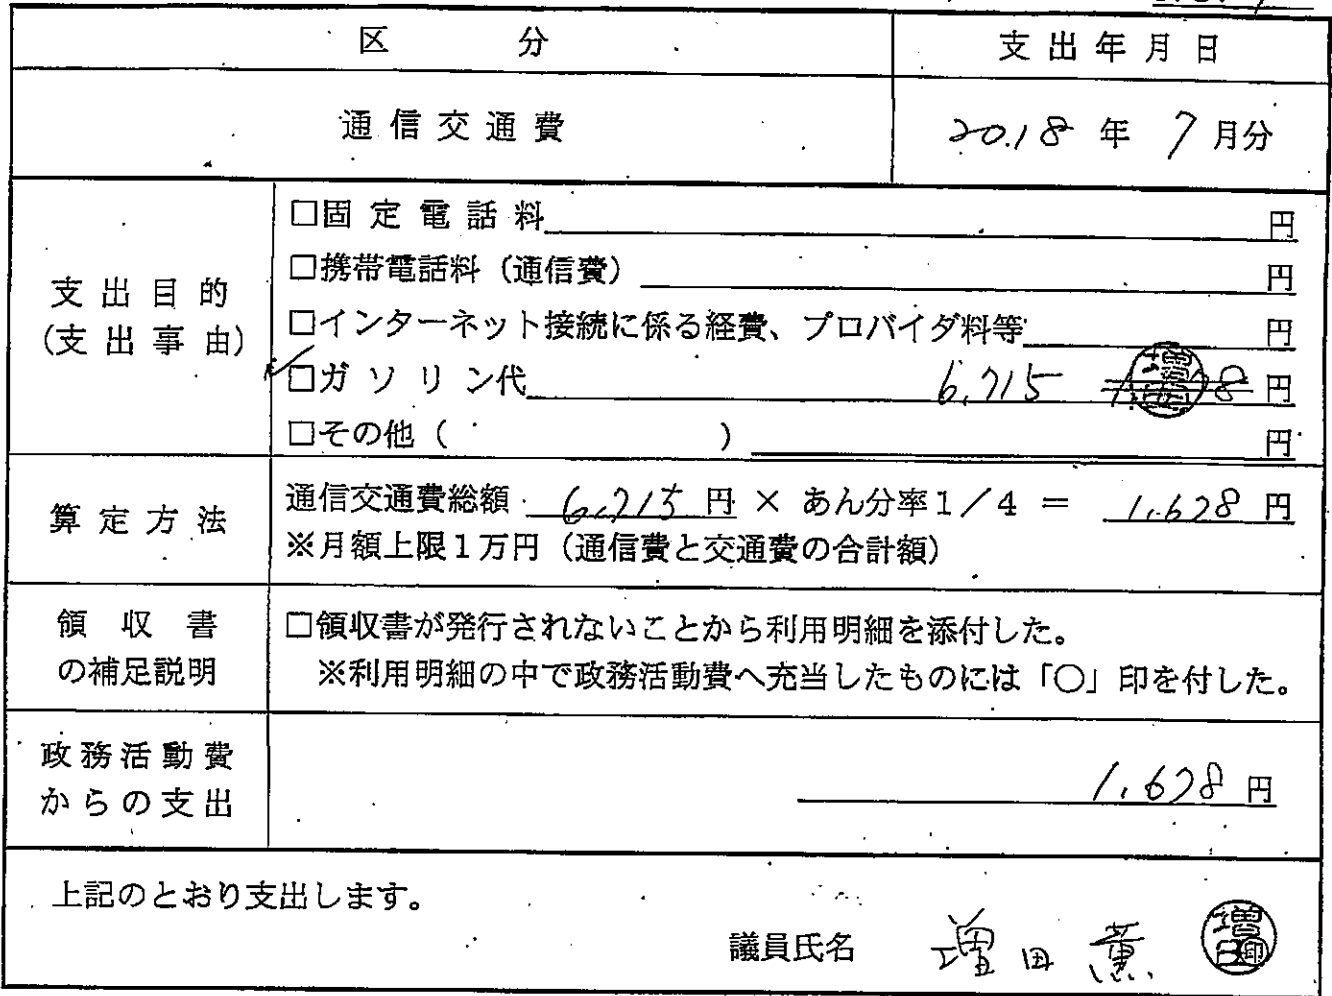 区 分 支出年月日
通信交通費 2018 年 7 月分
支出目的
(支出事由)
□固定電話料 円
□携帯電話料(通信費) 円
□インターネット接続に係る経費、プロバイダ料等 円
✓□ガソリン代 6,715 円
□その他( ) 円
算定方法
通信交通費総額 6,715 円 × あん分率1/4 = 1,678 円
※月額上限1万円(通信費と交通費の合計額)
領収書
の補足説明
□領収書が発行されないことから利用明細を添付した。
※利用明細の中で政務活動費へ充当したものには「〇」印を付した。
政務活動費
からの支出
1,678 円
上記のとおり支出します。
議員氏名 増田 薫